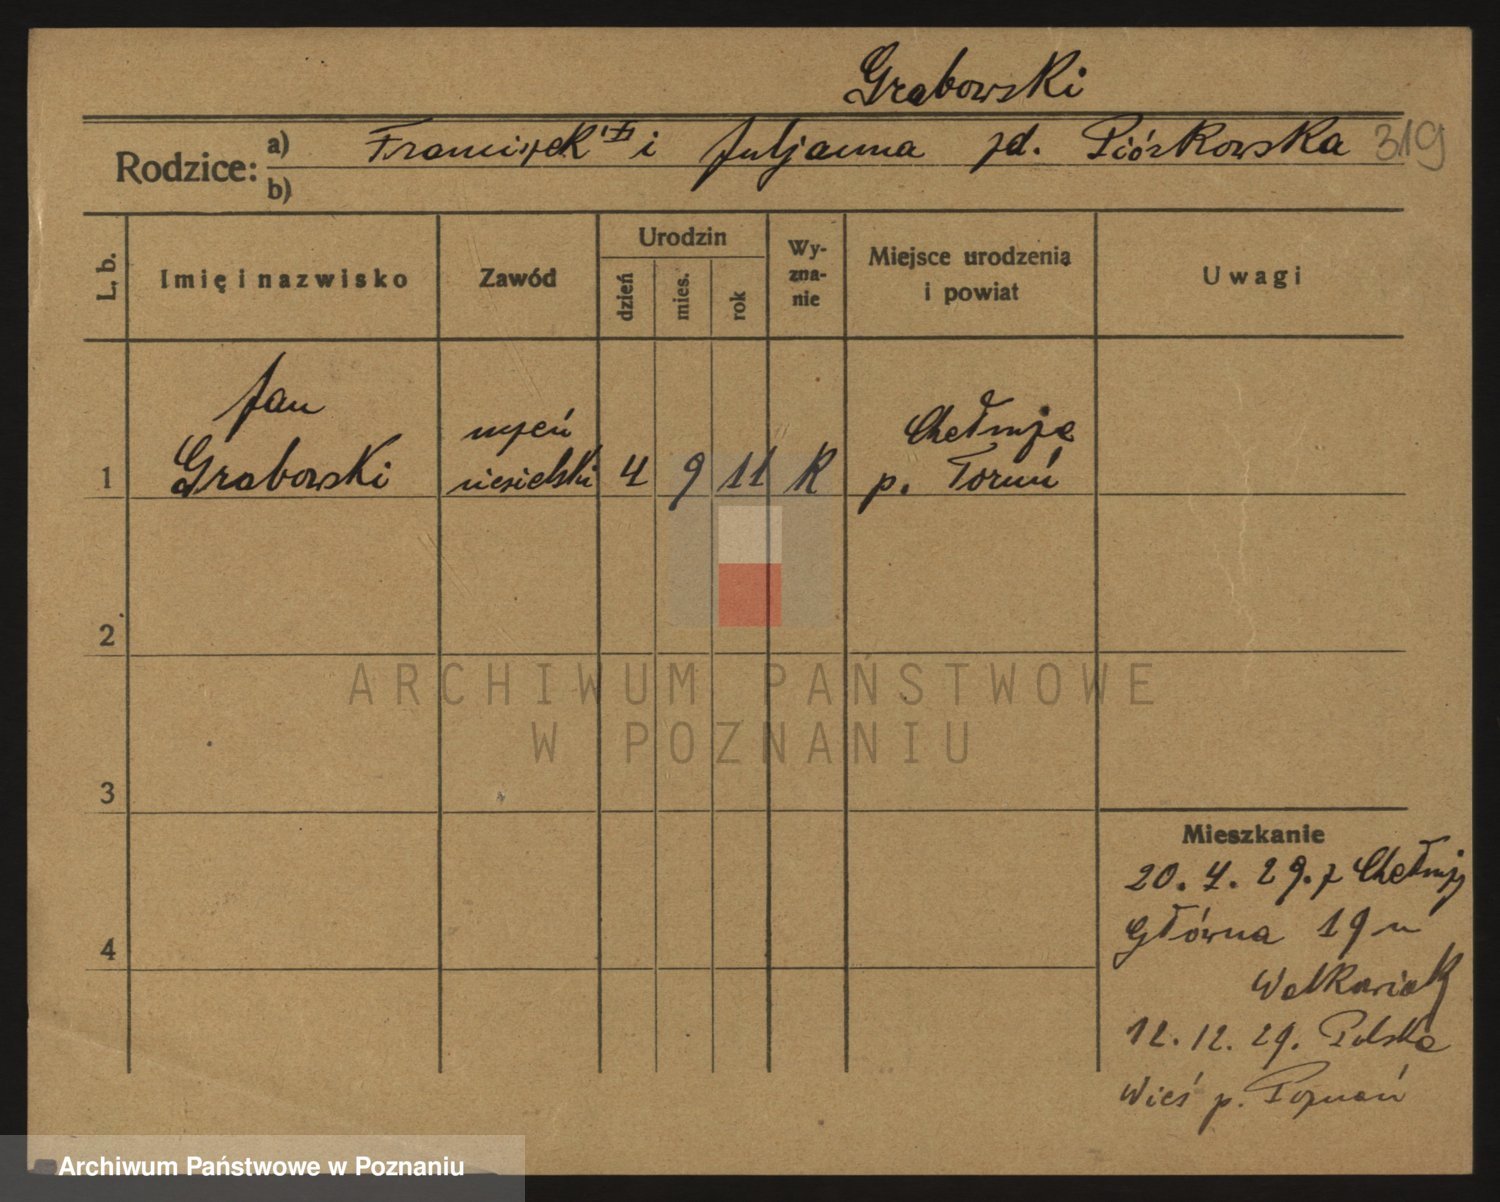 Grabowski
Rodzice: a) Franciszek i Juljanna zd. Piórkowska 319
b)
L. b.
Imię i nazwisko
Zawód
Urodzin
dzień
mies.
rok
Wy-
zna-
nie
Miejsce urodzenia
i powiat
Uwagi
Jan
Grabowski
uczeń
4 9 11 R
Chełmża
p. Toruń
1
2
3
4
Mieszkanie
20. 4. 29. z Chełmży
Główna 19 u
Walkowiak
12. 12. 29. Polska
Wieś p. Poznań
ARCHIWUM PAŃSTWOWE
W POZNANIU
Archiwum Państwowe w Poznaniu